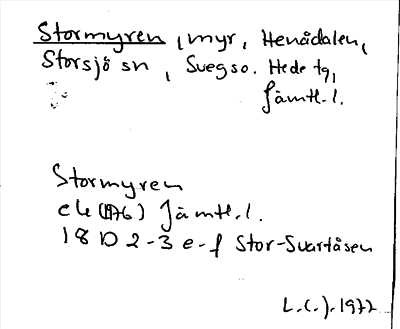 Stormyren, myr, Henådalen,
Storsjö sn, Svegs o. Hede tg,
Jämtl. l.
Stormyren
ek (1976) Jämtl. l.
18 D 2-3 e-f Stor-Svartåsen
L.(.). 1977